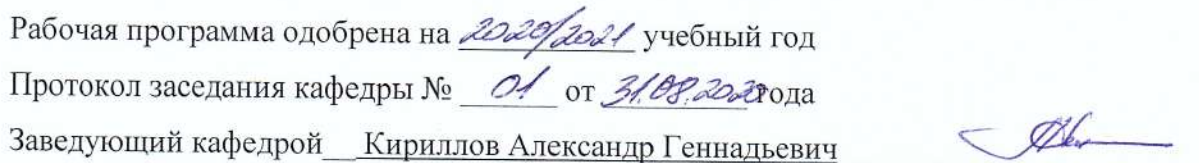 Рабочая программа одобрена на 2020/2021 учебный год
Протокол заседания кафедры № 01 от 31.08.2020 года
Заведующий кафедрой Кириллов Александр Геннадьевич